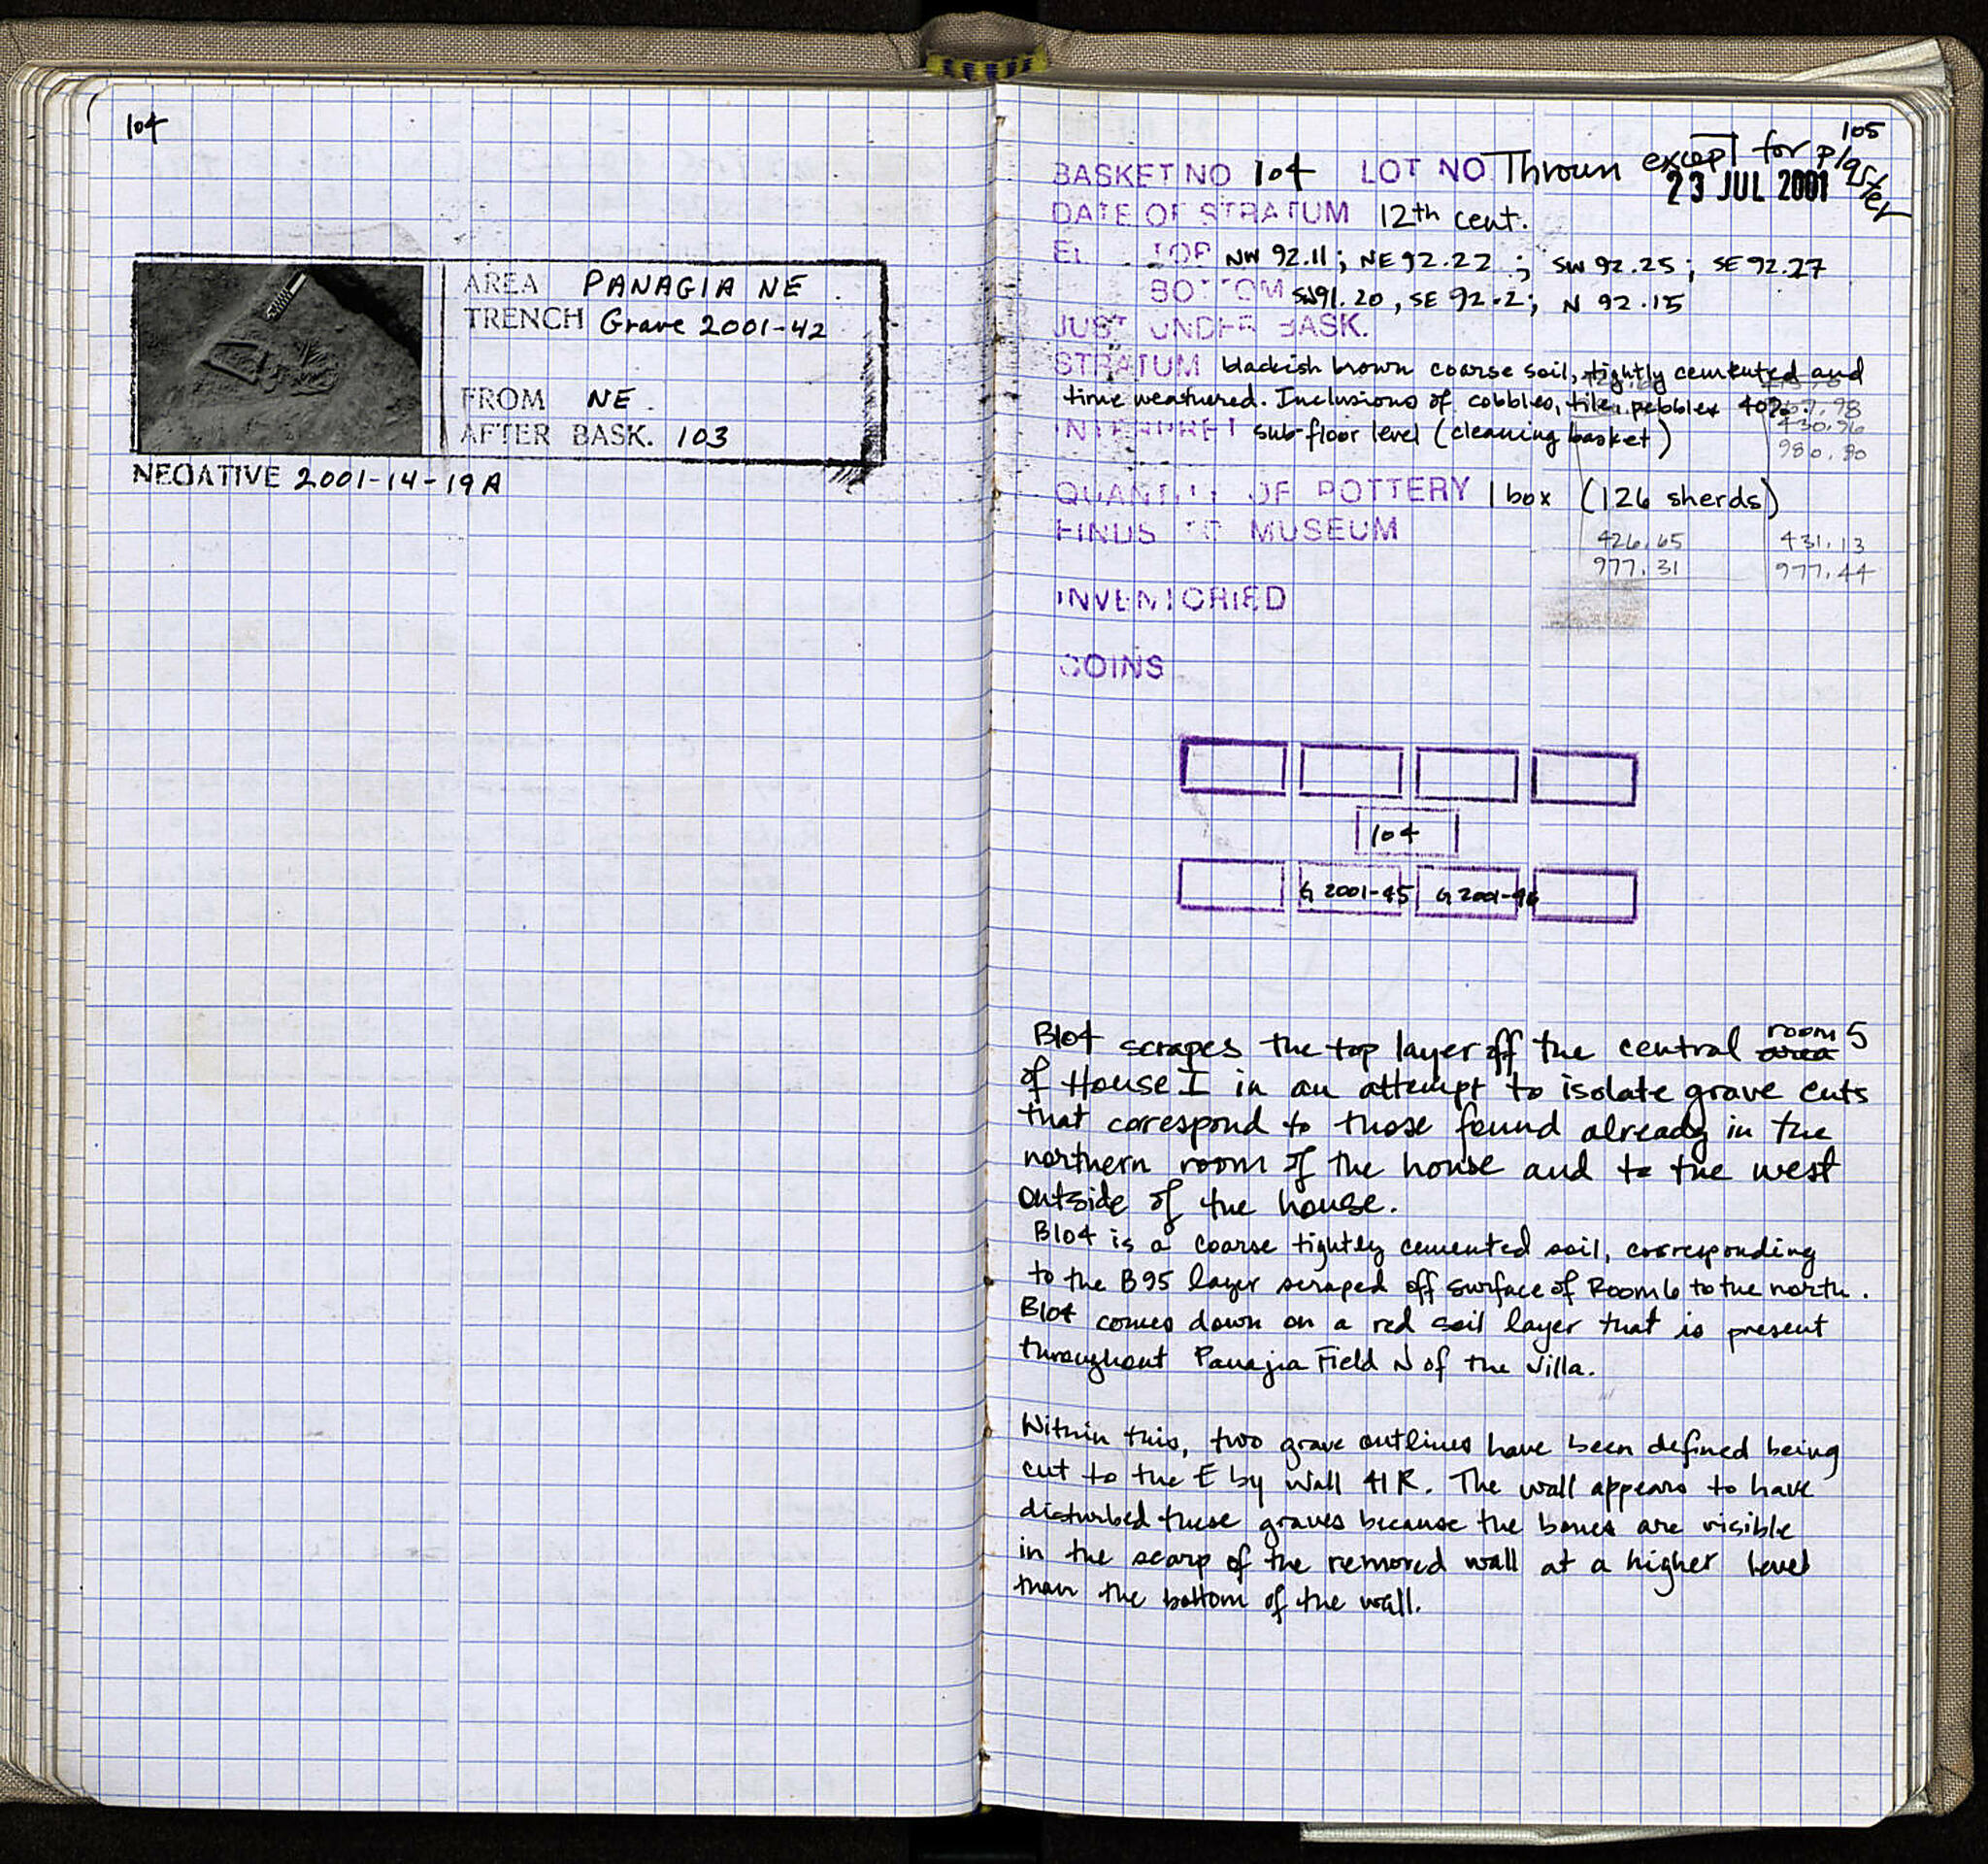 104
AREA PANAGIA NE
TRENCH Grave 2001-42
FROM NE.
AFTER BASK. 103
NEGATIVE 2001-14-19A
105
BASKET NO 104 LOT NO Thrown except for plaster
23 JUL 2001
DATE OF STRATUM 12th cent.
EL. TOP NW 92.11; NE 92.22; SW 92.25; SE 92.27
BOTTOM SW 91.20, SE 92.2; N 92.15
JUST UNDER BASK.
STRATUM blackish brown coarse soil, tightly cemented and
time weathered. Inclusions of cobbles, tile, pebbles 40%
430.96
INTERPRET sub-floor level (cleaning basket)
980.80
QUANTITY OF POTTERY 1 box (126 sherds)
FINDS AT MUSEUM
426.65 431.13
977.31 977.44
INVENTORIED
COINS
104
G 2001-45 G 2001-46
B104 scrapes the top layer off the central area room 5
of House I in an attempt to isolate grave cuts
that correspond to those found already in the
northern room of the house and to the west
outside of the house.
B104 is a coarse tightly cemented soil, corresponding
to the B95 layer scraped off surface of Room 6 to the north.
B104 comes down on a red soil layer that is present
throughout Panajia Field N of the Villa.
Within this, two grave outlines have been defined being
cut to the E by Wall 41R. The wall appears to have
disturbed these graves because the bones are visible
in the scarp of the removed wall at a higher level
than the bottom of the wall.